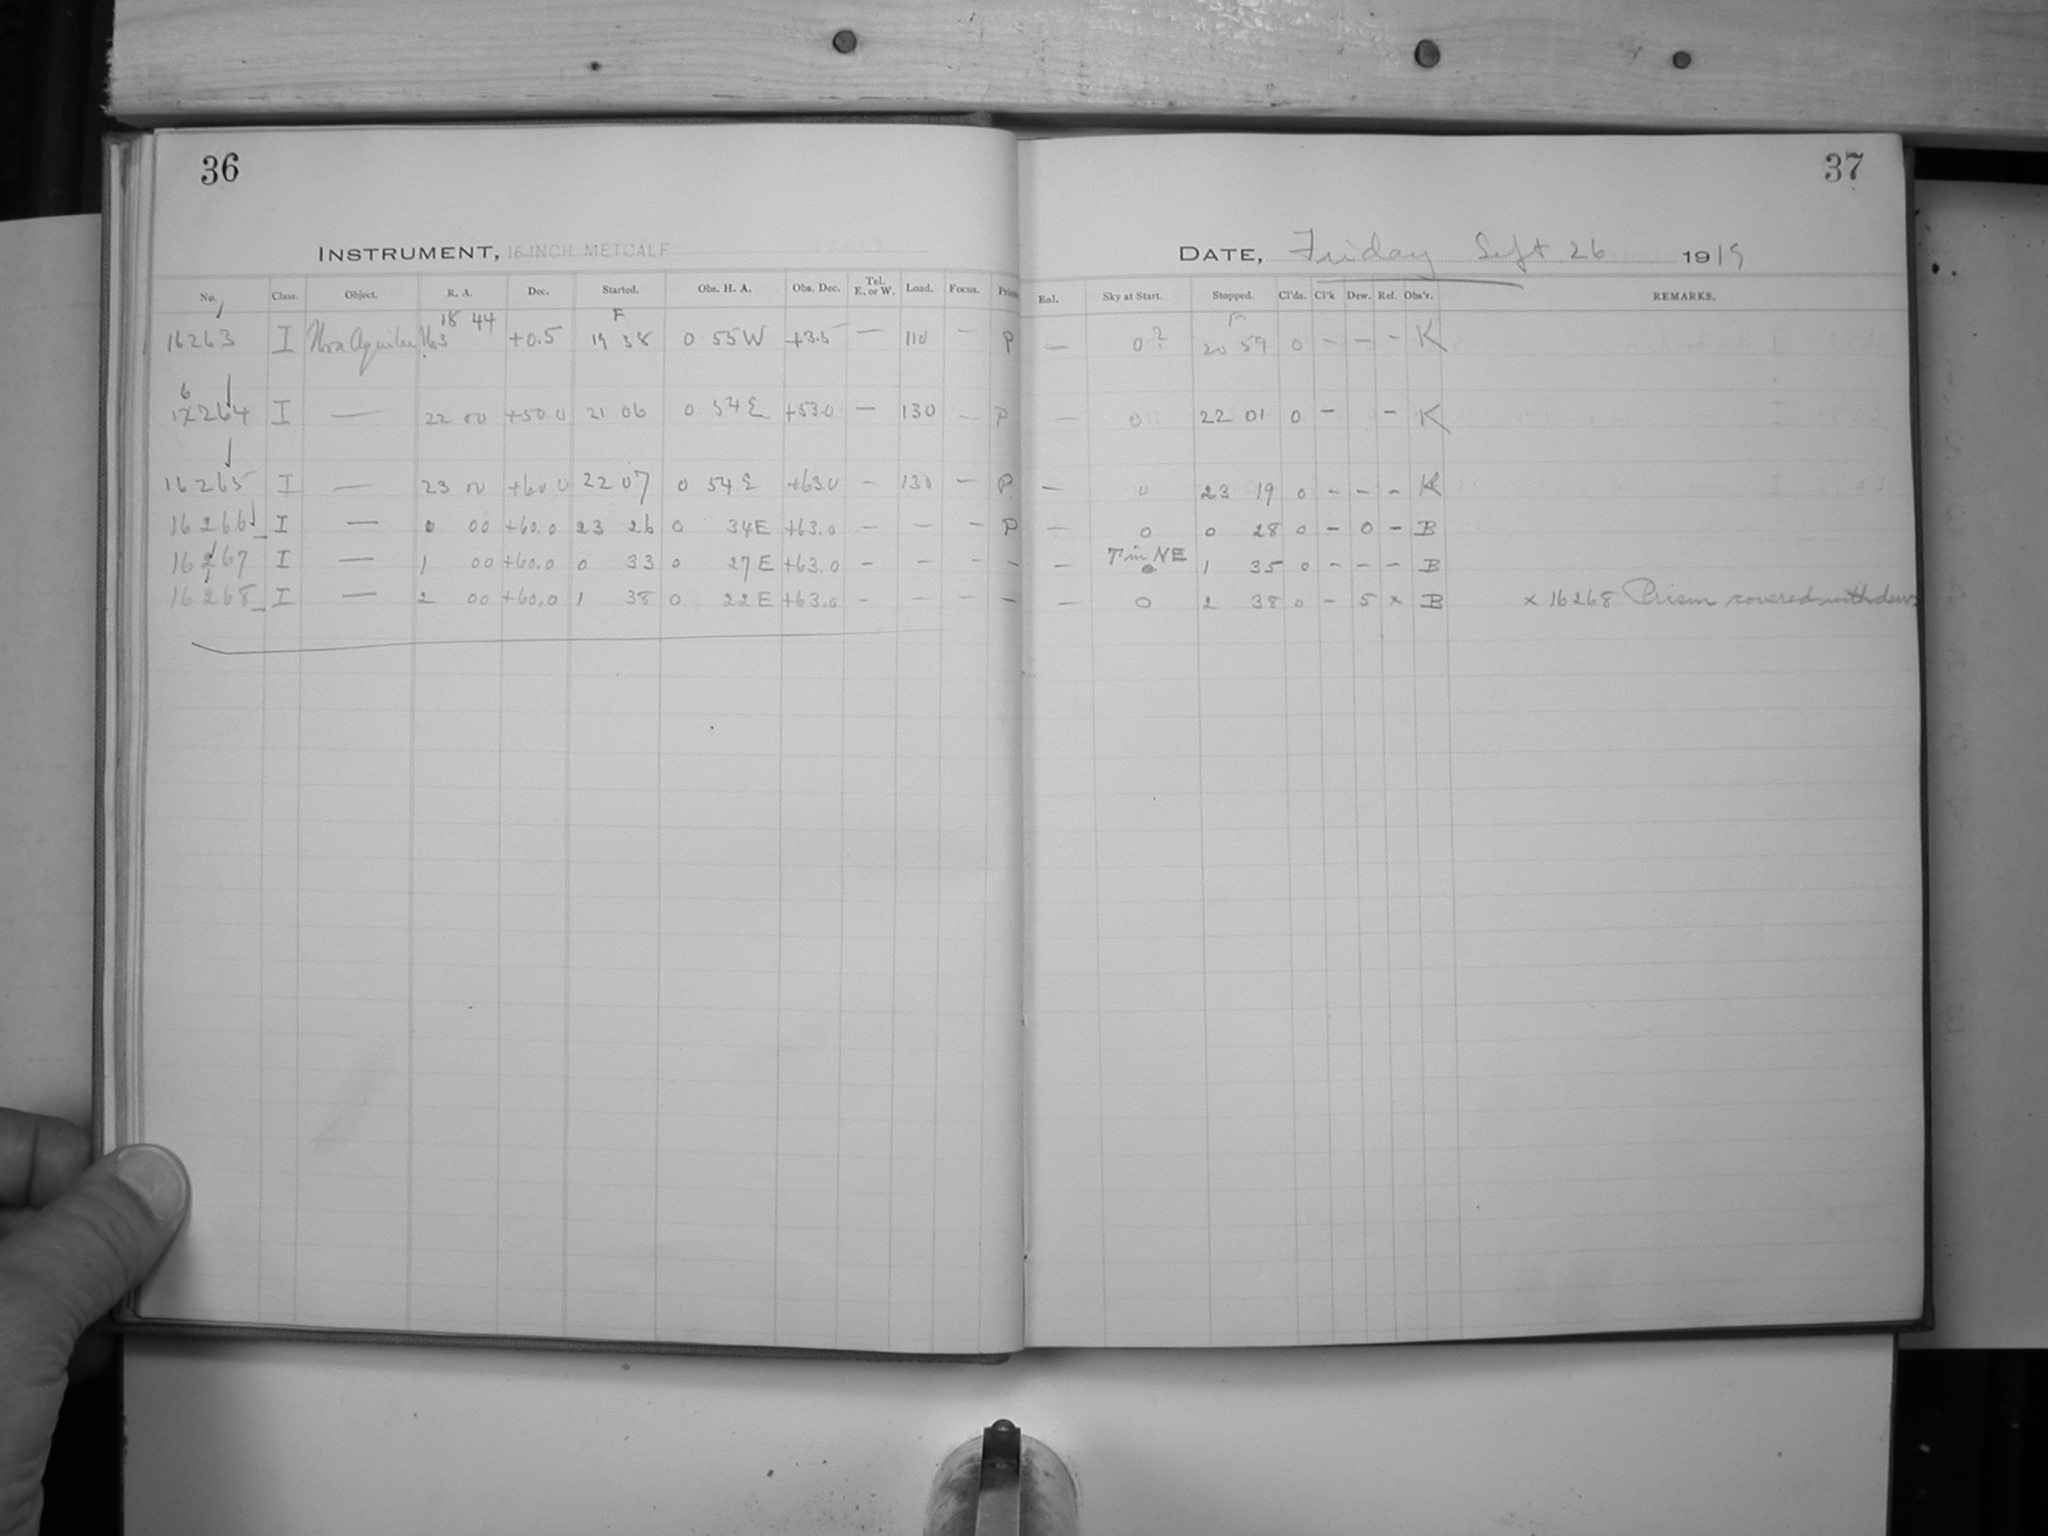 36
37
INSTRUMENT, 16-INCH METCALF
DATE, Friday Sept 26 1919
No. Class. Object. R. A. Dec. Started. Obs. H. A. Obs. Dec. Tel. E. or W. Load. Focus. Prism Enl. Sky at Start. Stopped. Cl'ds. Cl'k Dew. Ref. Obs'r. REMARKS.
18 44 F
16263 I Nova Aquilae No3 +0.5 19 38 0 55W +3.5 — 110 — P — 0? 20 59 0 - - - K
6
17264 I — 22 00 +50.0 21 06 0 54E +53.0 — 130 — P — 0 22 01 0 - - K
16265 I — 23 00 +60.0 22 07 0 54E +63.0 - 130 - P — 0 23 19 0 - - - K
16266 I — 0 00 +60.0 23 26 0 34E +63.0 - - - P — 0 0 28 0 - 0 - B
T in NE
16267 I — 1 00 +60.0 0 33 0 27E +63.0 - - - - — 0 1 35 0 - - - B
16268 I — 2 00 +60.0 1 38 0 22E +63.0 - - - - — 0 2 38 0 - 5 x B x 16268 Prism covered with dew